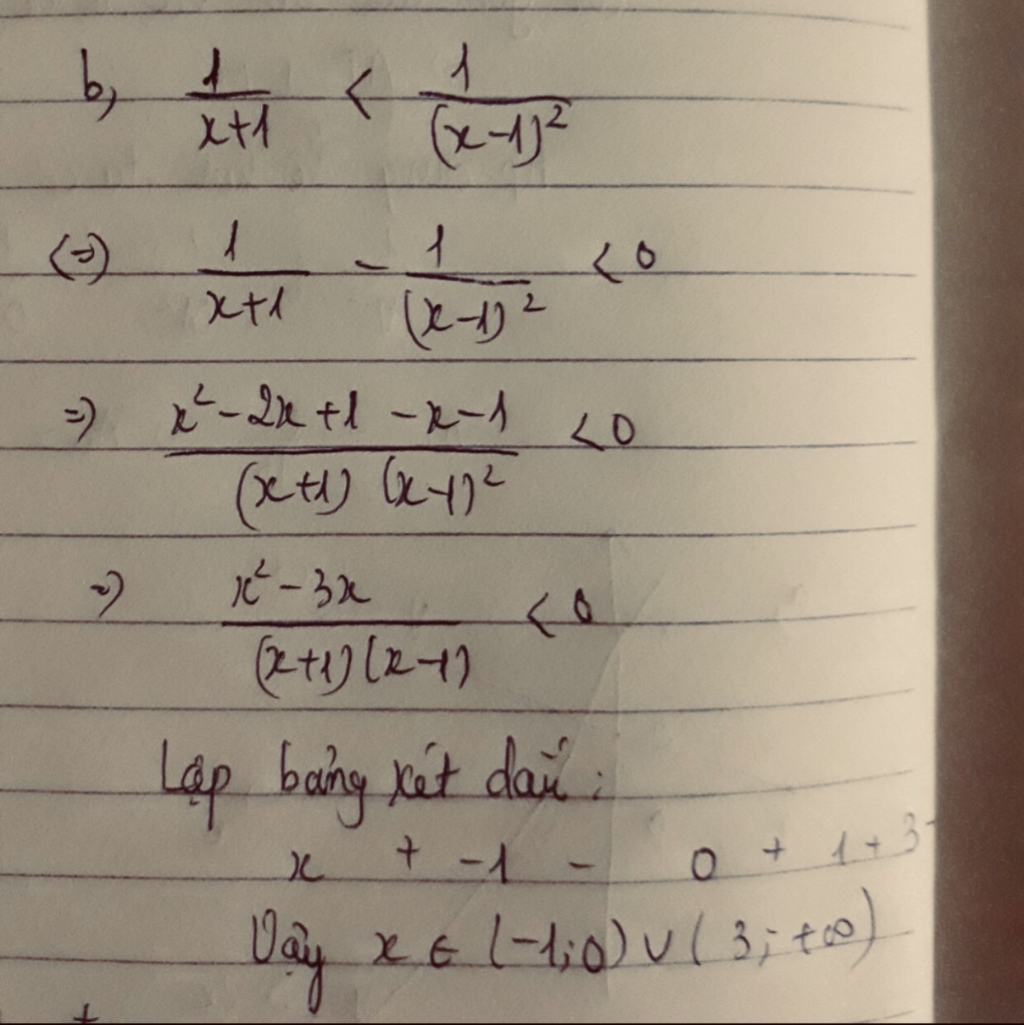 b, 1/(x+1) < 1/(x-1)²
(=) 1/(x+1) - 1/(x-1)² < 0
=) (x² - 2x + 1 - x - 1)/((x+1)(x-1)²) < 0
=) (x² - 3x)/((x+1)(x-1)) < 0
Lập bảng xét dấu:
x + -1 - 0 + 1 + 3 -
Vậy x ∈ (-1; 0) ∪ (3; +∞)